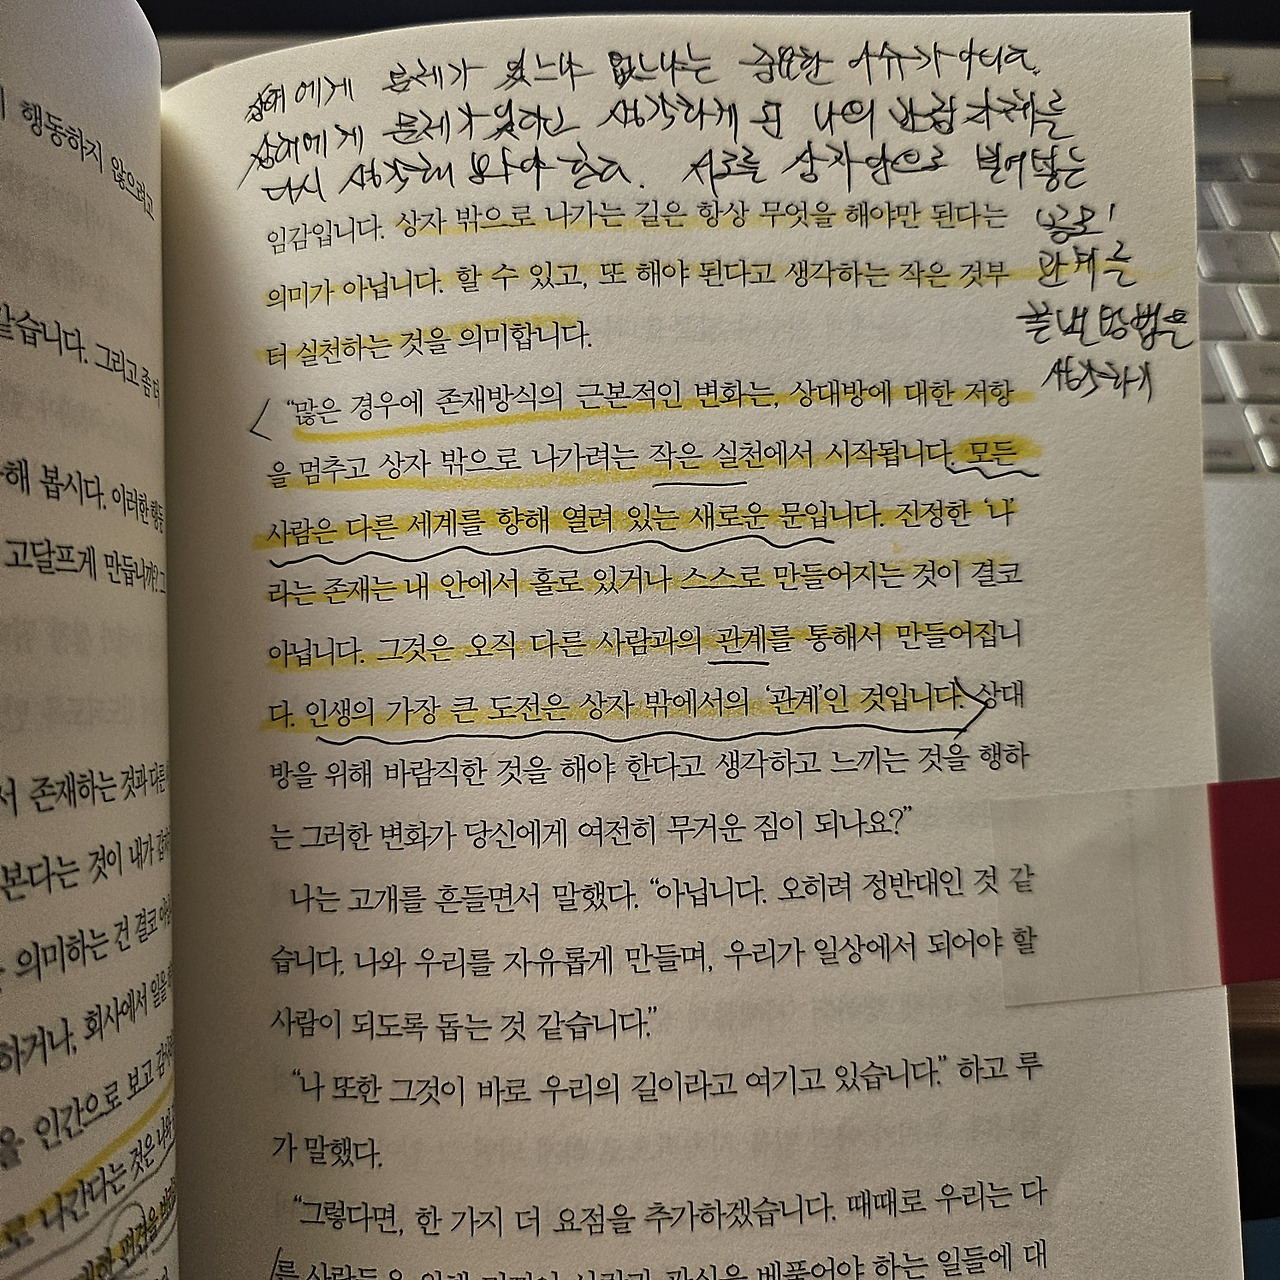 상대에게 문제가 있느냐 없느냐는 중요한 이슈가 아니다.
상대에게 문제가 있다고 생각하게 된 나의 반응 자체를
다시 생각해 보아야 한다. 서로를 상자 안으로 밀어넣는
공모
관계를
끝낼 방법을
생각하기
임감입니다. 상자 밖으로 나가는 길은 항상 무엇을 해야만 된다는
의미가 아닙니다. 할 수 있고, 또 해야 된다고 생각하는 작은 것부
터 실천하는 것을 의미합니다.
“많은 경우에 존재방식의 근본적인 변화는, 상대방에 대한 저항
을 멈추고 상자 밖으로 나가려는 작은 실천에서 시작됩니다. 모든
사람은 다른 세계를 향해 열려 있는 새로운 문입니다. 진정한 ‘나’
라는 존재는 내 안에서 홀로 있거나 스스로 만들어지는 것이 결코
아닙니다. 그것은 오직 다른 사람과의 관계를 통해서 만들어집니
다. 인생의 가장 큰 도전은 상자 밖에서의 ‘관계’인 것입니다. 상대
방을 위해 바람직한 것을 해야 한다고 생각하고 느끼는 것을 행하
는 그러한 변화가 당신에게 여전히 무거운 짐이 되나요?”
나는 고개를 흔들면서 말했다. “아닙니다. 오히려 정반대인 것 같
습니다. 나와 우리를 자유롭게 만들며, 우리가 일상에서 되어야 할
사람이 되도록 돕는 것 같습니다.”
“나 또한 그것이 바로 우리의 길이라고 여기고 있습니다.” 하고 루
가 말했다.
“그렇다면, 한 가지 더 요점을 추가하겠습니다. 때때로 우리는 다
른 사람들을 위해 관심을 베풀어야 하는 일들에 대
행동하지 않으려고
같습니다. 그리고 좀 더
해 봅시다. 이러한 행동
고달프게 만듭니까? 그
서 존재하는 것과 다른
본다는 것이 내가
의미하는 건 결코
하거나, 회사에서 일을
을 인간으로 보고
로 나간다는 것은 나와
편견을